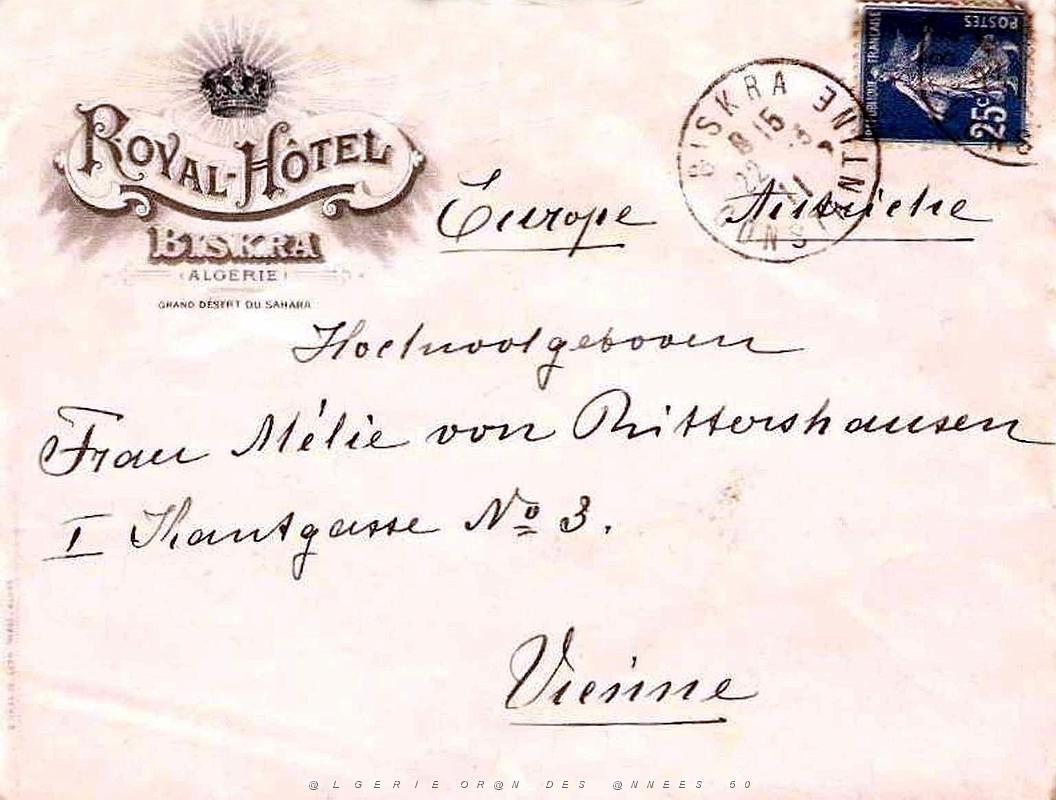 ROYAL-HÔTEL
BISKRA
(ALGÉRIE)
GRAND DÉSERT DU SAHARA
BISKRA
CONSTANTINE
15
22
11
RÉPUBLIQUE FRANÇAISE
POSTES
25c
Europe Autriche
Hochwolgeboren
Frau Mélie von Rittershausen
I Kantgasse No 3.
Vienne
@LGERIE OR@N DES @NNEES 50